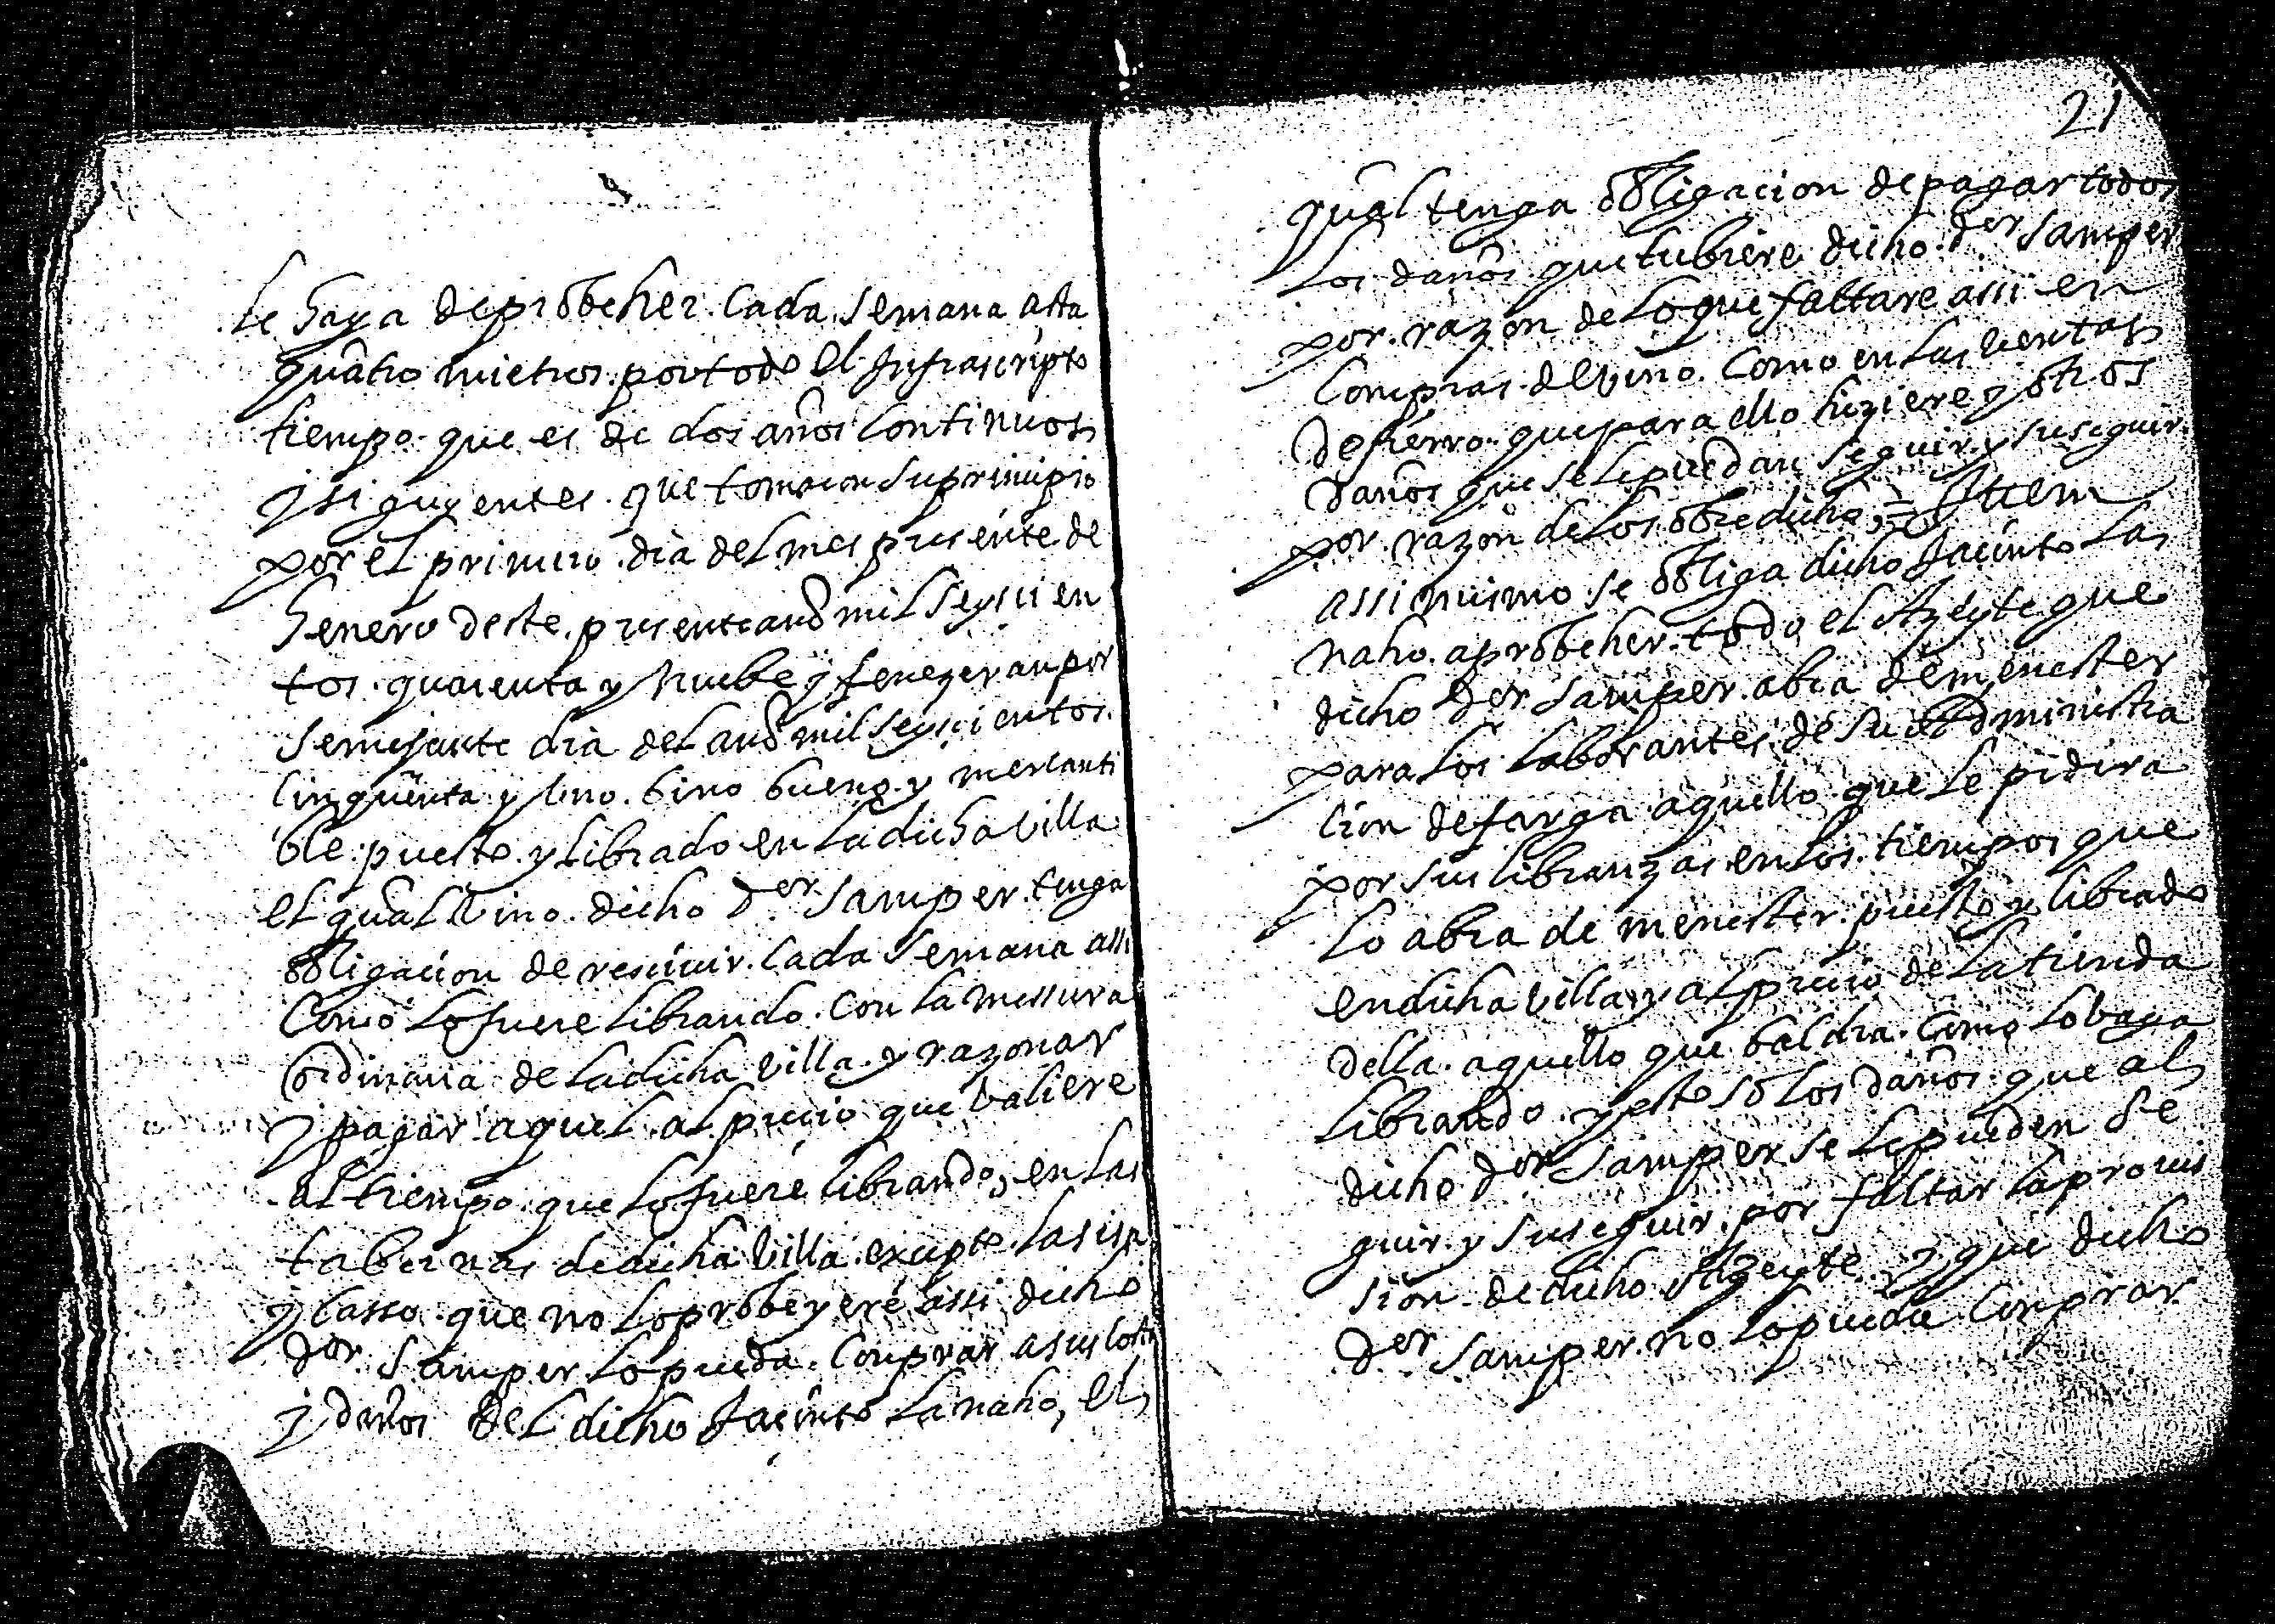 le haya deprobeher. Cada semana asta
quatro mietros. por todo el Infrascripto
tiempo. que es de dos años Continuos
y siguyentes. que tomaron su principio
por el primero. dia del mes presente de
henero deste. presente año mil seyscien
tos. quarenta y nuebe y fenezeran por
semejante dia del año mil seyscientos.
Cinquenta y Uno. bino bueno. y mercanti
ble. puesto. y librado en la dicha Villa
el qual Vino. dicho Dor. Samper. tenga
obligacion de rescivir. Cada semana assi
Como lo fuere librando. Con la messura
ordinaria de la dicha Villa. y razonar
y pagar aquel al precio que baliere
al tiempo que lo fuere librando, en las
tabernas de dicha Villa. excepto las
y Casso. que no lo probeyere assi dicho
dor. Samper lo pueda. Comprar a sus costas
y daños del dicho Jacinto Lanaho, el
21
qual tenga obligacion de pagar todos
los daños que tubiere dicho. dor Samper
por. razon de lo que faltare assi en
Compras. del Vino. Como en las Ventas
de hierro. que para ello hiziere y otros
daños que se le puedan seguir. y suseguir.
por. razon de lo sobredicho = Ittem
assi mismo se obliga dicho Jacinto La
naho. a probeher. todo el Azeyte que
dicho Dor Samper. abra de menester
para los laborantes de su Administra
cion de farga aquello que le pidira
por sus libranzas en los. tiempos que
lo abra de menester. puesto y librado
en dicha Villa y al precio de la tienda
della. aquello que baldra. Como lo baya
librando. y esto so los daños. que al
dicho dor Samper se le pueden se
guir. y suseguir. por faltar la provis
sion. de dicho Azeyte. y que dicho
Dor Samper. no lo pueda Comprar.